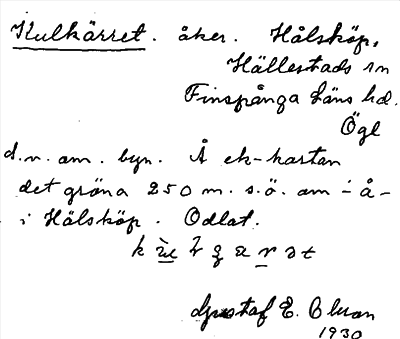 Kulkärret. åker. Hålsköp,
Hällestads sn
Finspånga läns hd.
Ögl
d.v. om. byn. Å ek-kartan
det gröna 250 m. s.ö. om - å -
i Hålsköp. Odlat.
Gustaf E.
1930